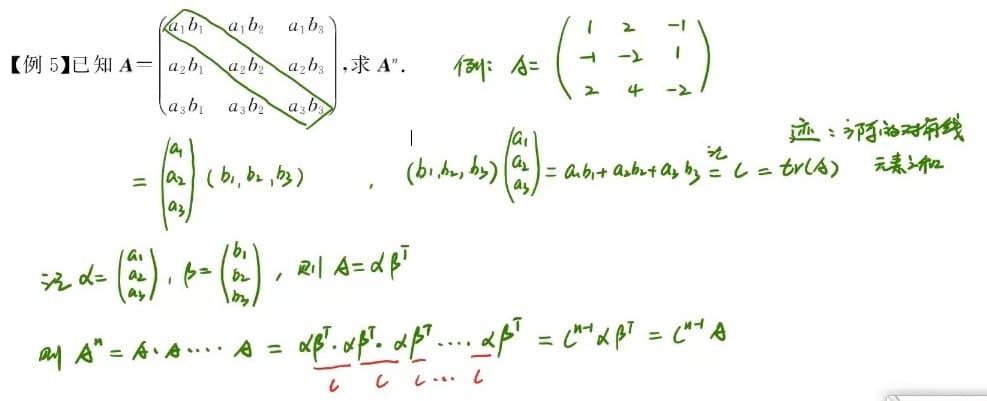 【例 5】已知 A = \begin{pmatrix} a_1b_1 & a_1b_2 & a_1b_3 \\ a_2b_1 & a_2b_2 & a_2b_3 \\ a_3b_1 & a_3b_2 & a_3b_3 \end{pmatrix}, 求 A^n. 例: A = \begin{pmatrix} 1 & 2 & -1 \\ -1 & -2 & 1 \\ 2 & 4 & -2 \end{pmatrix}
= \begin{pmatrix} a_1 \\ a_2 \\ a_3 \end{pmatrix} (b_1, b_2, b_3) , (b_1, b_2, b_3) \begin{pmatrix} a_1 \\ a_2 \\ a_3 \end{pmatrix} = a_1b_1 + a_2b_2 + a_3b_3 \overset{记}{=} C = tr(A) 迹: 方阵的对角线
元素之和
记 α = \begin{pmatrix} a_1 \\ a_2 \\ a_3 \end{pmatrix}, β = \begin{pmatrix} b_1 \\ b_2 \\ b_3 \end{pmatrix}, 则 A = αβ^T
则 A^n = A·A····· A = αβ^T · αβ^T · αβ^T ···· αβ^T = C^{n-1} αβ^T = C^{n-1} A
C C C ··· C